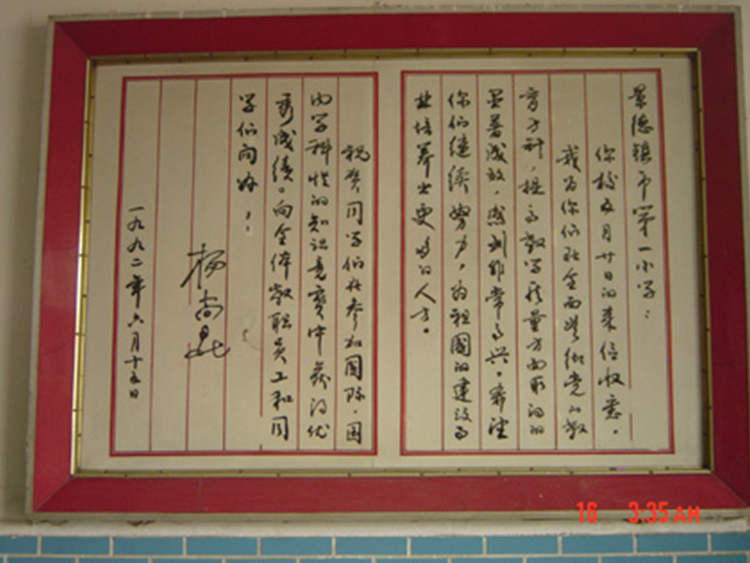 景德镇市第一小学：
你校五月廿日的来信收悉。
我为你们在全面贯彻党的教
育方针，提高教学质量方面取得的
显著成效，感到非常高兴。希望
你们继续努力，为祖国的建设事
业培养出更多的人才。
祝贺同学们在参加国际、国
内学科性的知识竞赛中获得优
秀成绩。向全体教职员工和同
学们问好！
杨尚昆
一九九二年六月十五日
16 3:35AM